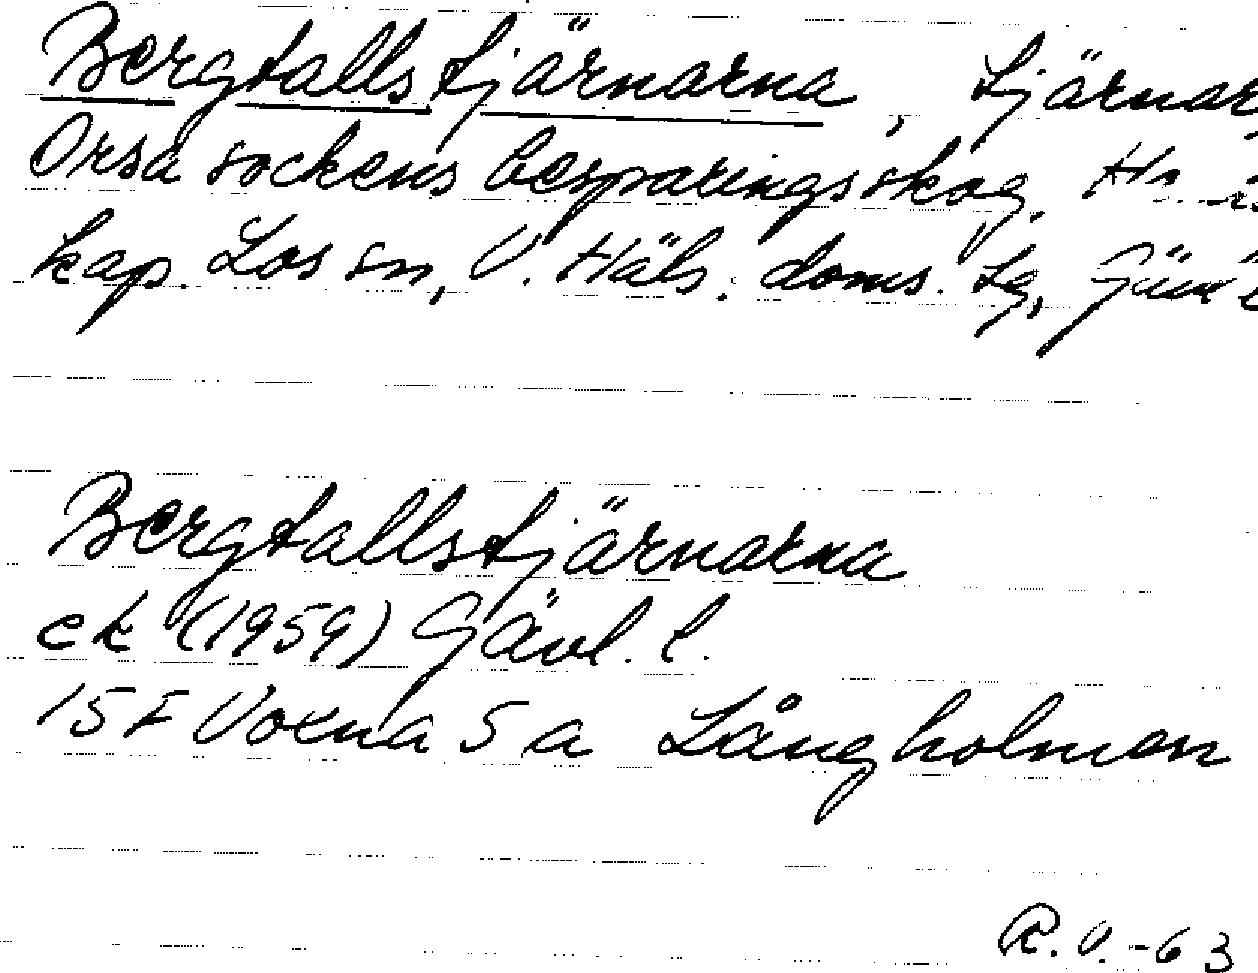 Bergtallstjärnarna, tjärnar
Orsa sockens besparingsskog,
kap. Los sn, V. Häls. doms. tg,
Bergtallstjärnarna
ek (1959) Gävl. l.
15F Voxna 5a Långholmen
R.V.-63